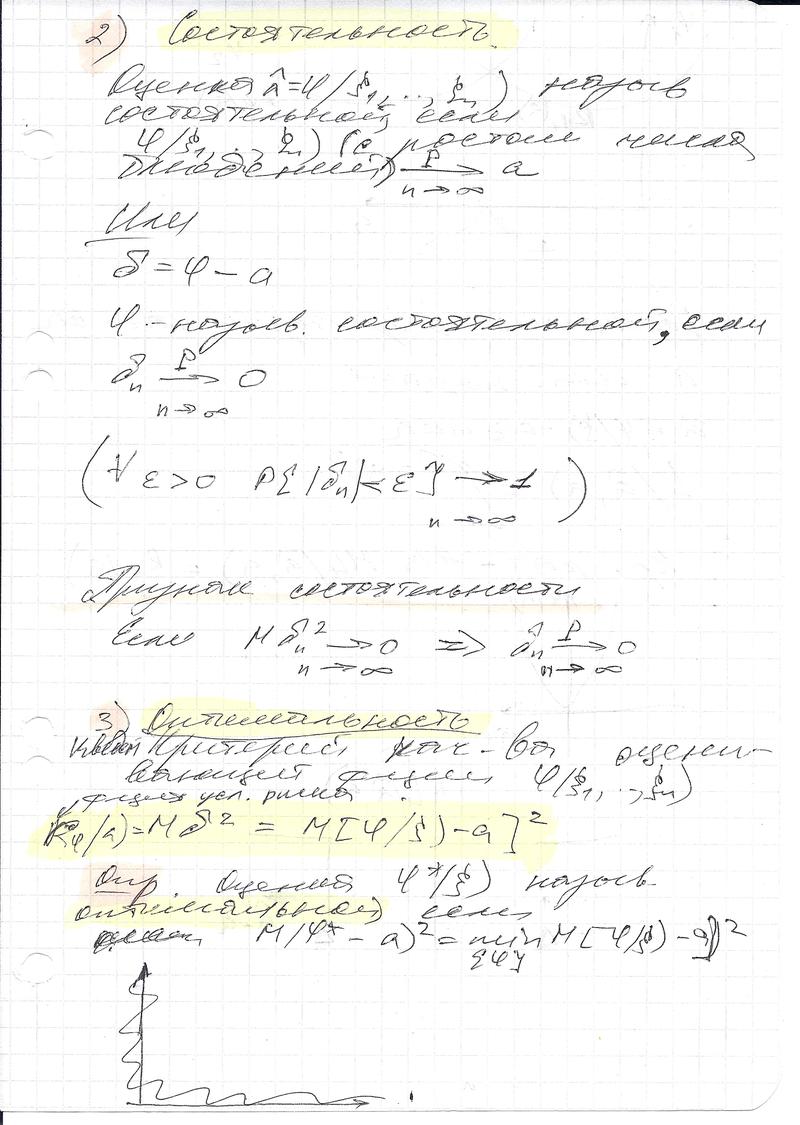 2) Состоятельность
Оценка â = φ(ξ₁, .., ξₙ) назыв
состоятельной, если
φ(ξ₁, .., ξₙ) (с ростом числа
наблюдений) P→ n→∞ a
Или
δ = φ − a
φ - назыв. состоятельной, если
δₙ P→ n→∞ 0
(∀ ε>0 P{|δₙ|<ε} → n→∞ 1)
Признак состоятельности
Если M δₙ² → n→∞ 0 => δₙ P→ n→∞ 0
3) Оптимальность
Критерий кач-ва оцени-
вающей φ(ξ₁, .., ξₙ)
усл. риска
R_φ(a) = M δ² = M[φ(ξ) − a]²
Опр. Оценка φ*(ξ) назыв.
оптимальной если
M(φ* − a)² = min {φ} M[φ(ξ) − a]²